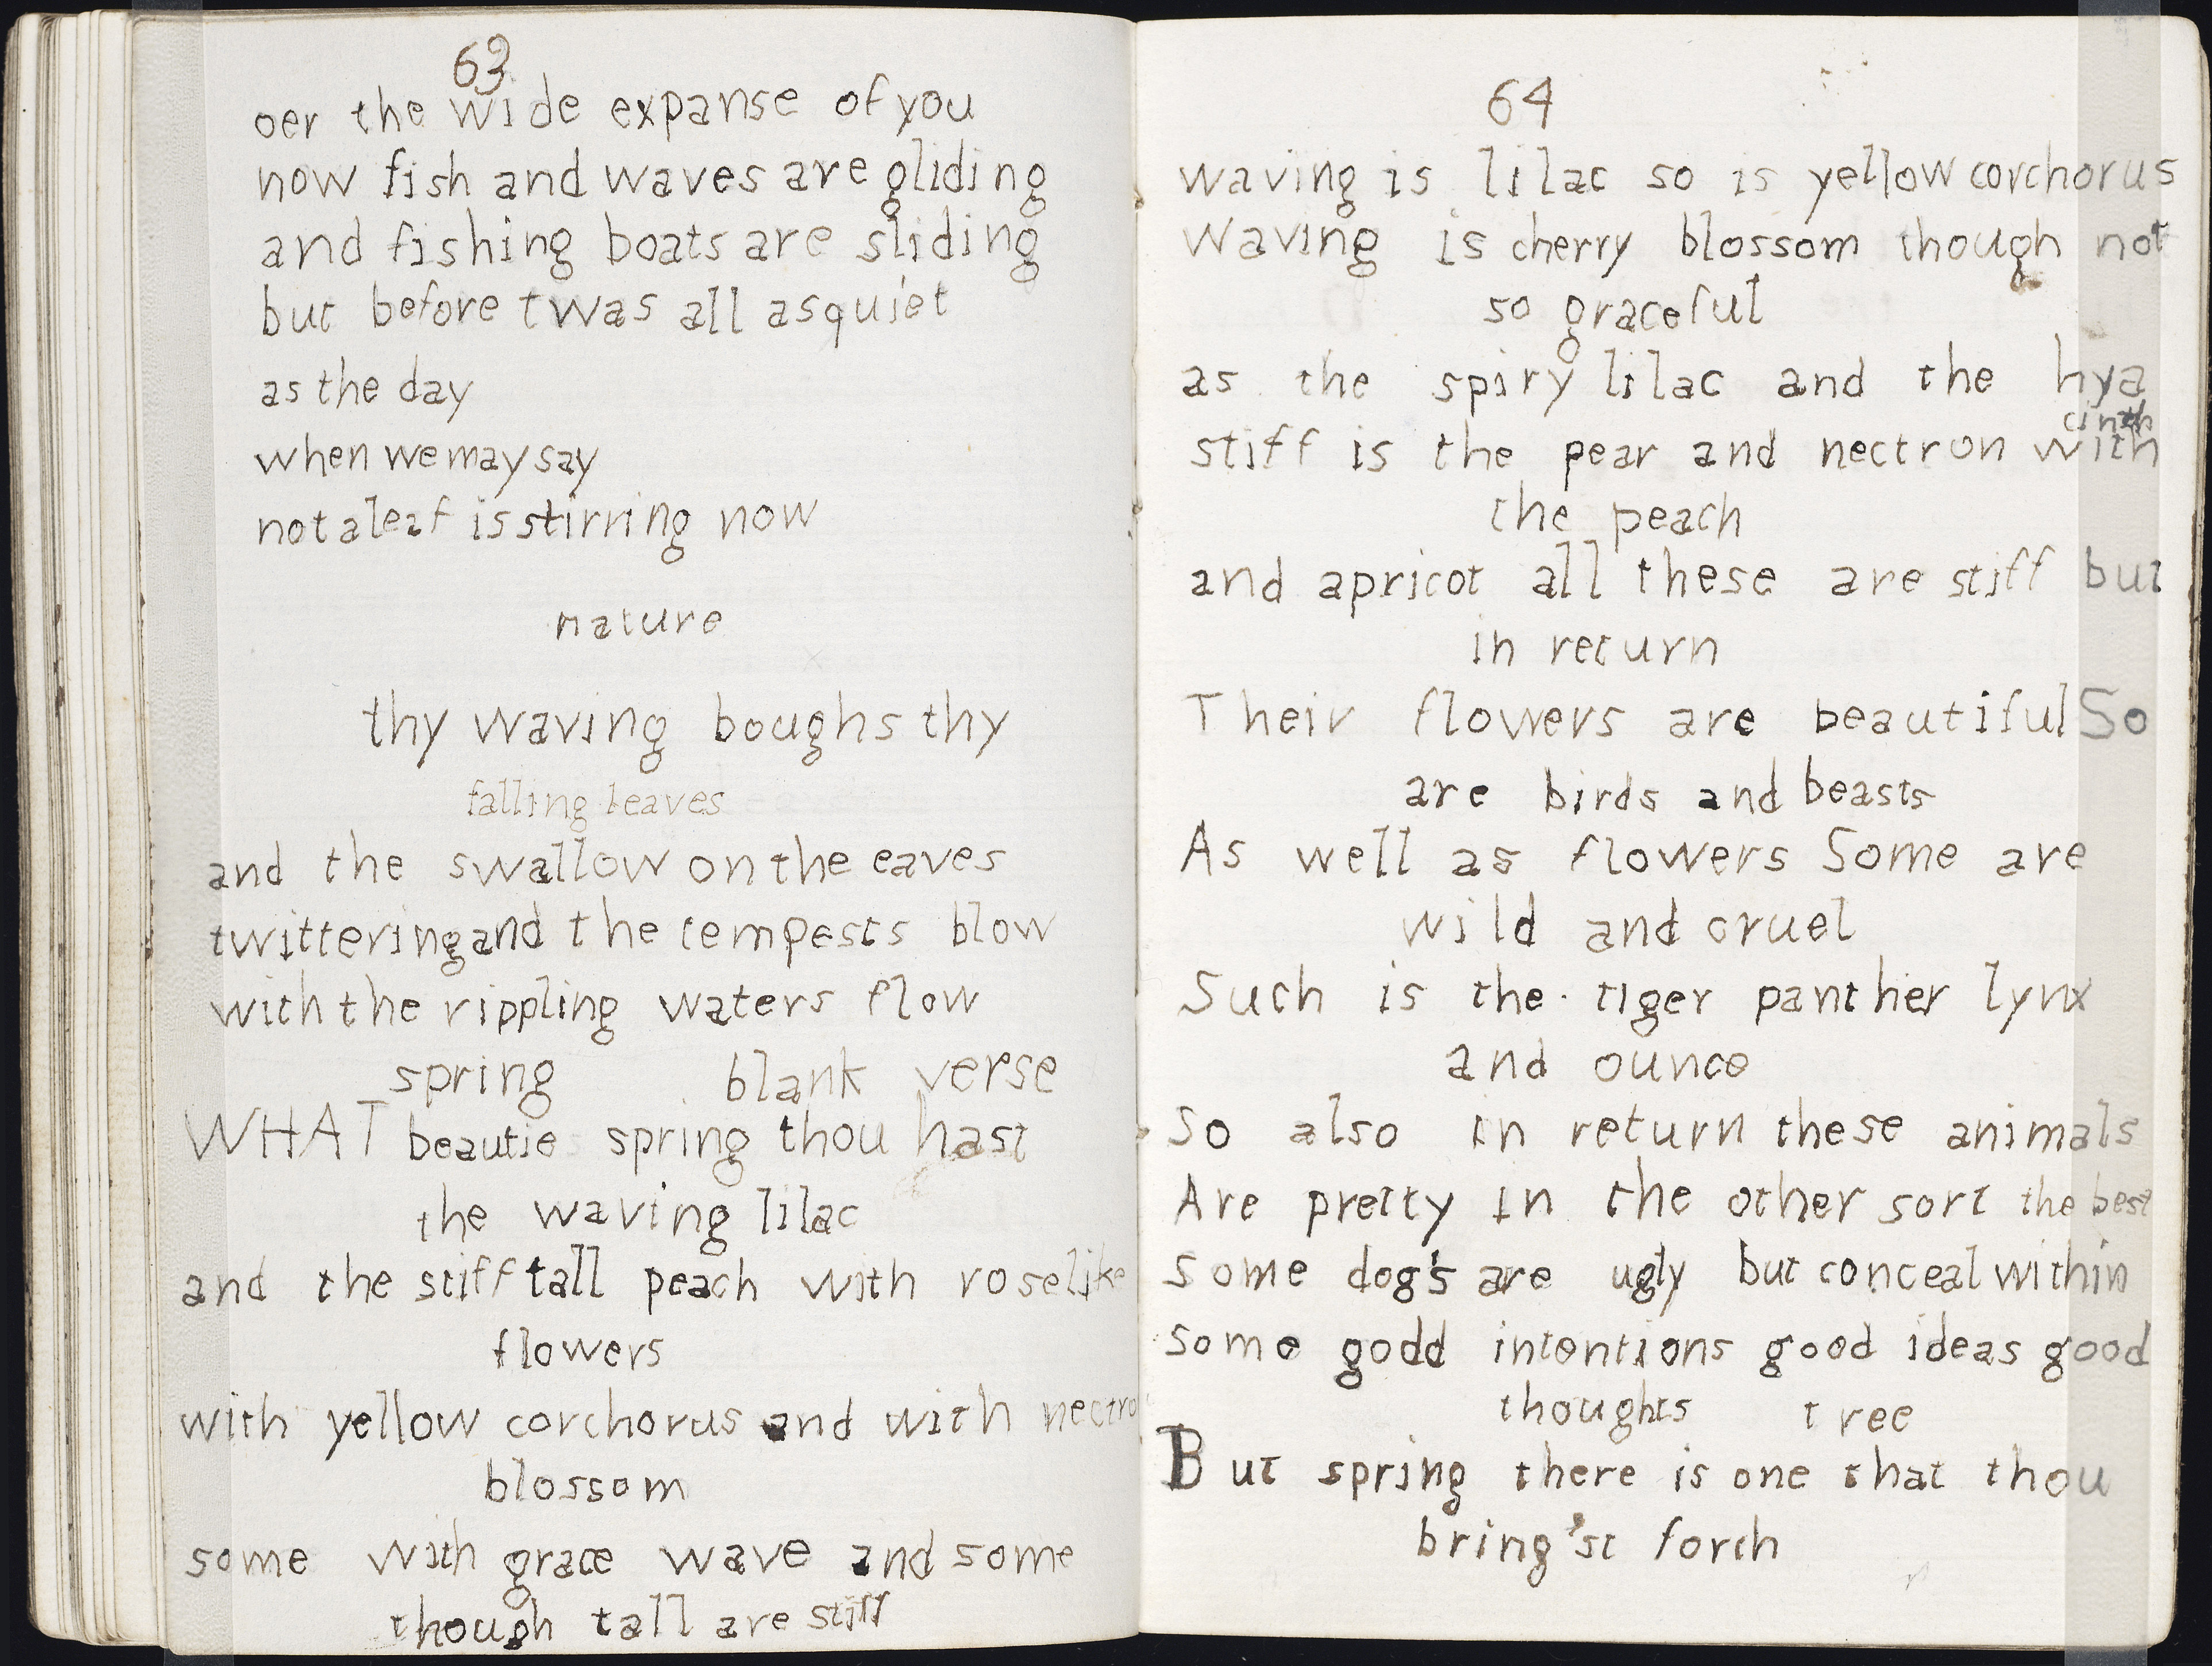 63
oer the wide expanse of you
now fish and waves are gliding
and fishing boats are sliding
but before twas all as quiet
as the day
when we may say
not a leaf is stirring now
nature
thy waving boughs thy
falling leaves
and the swallow on the eaves
twittering and the tempests blow
with the rippling waters flow
spring blank verse
WHAT beautie spring thou hast
the waving lilac
and the stiff tall peach with roselike
flowers
with yellow corchorus and with nectro
blossom
some with grace wave and some
though tall are stiff
64
waving is lilac so is yellow corchorus
Waving is cherry blossom though not
so graceful
as the spiry lilac and the hya
cinth
stiff is the pear and nectron with
the peach
and apricot all these are stiff but
in return
Their flowers are beautiful So
are birds and beasts
As well as flowers Some are
wild and cruel
Such is the tiger panther lynx
and ounce
So also in return these animals
Are pretty in the other sort the best
some dog's are ugly but conceal within
some godd intentions good ideas good
thoughts tree
But spring there is one that thou
bring'st forth